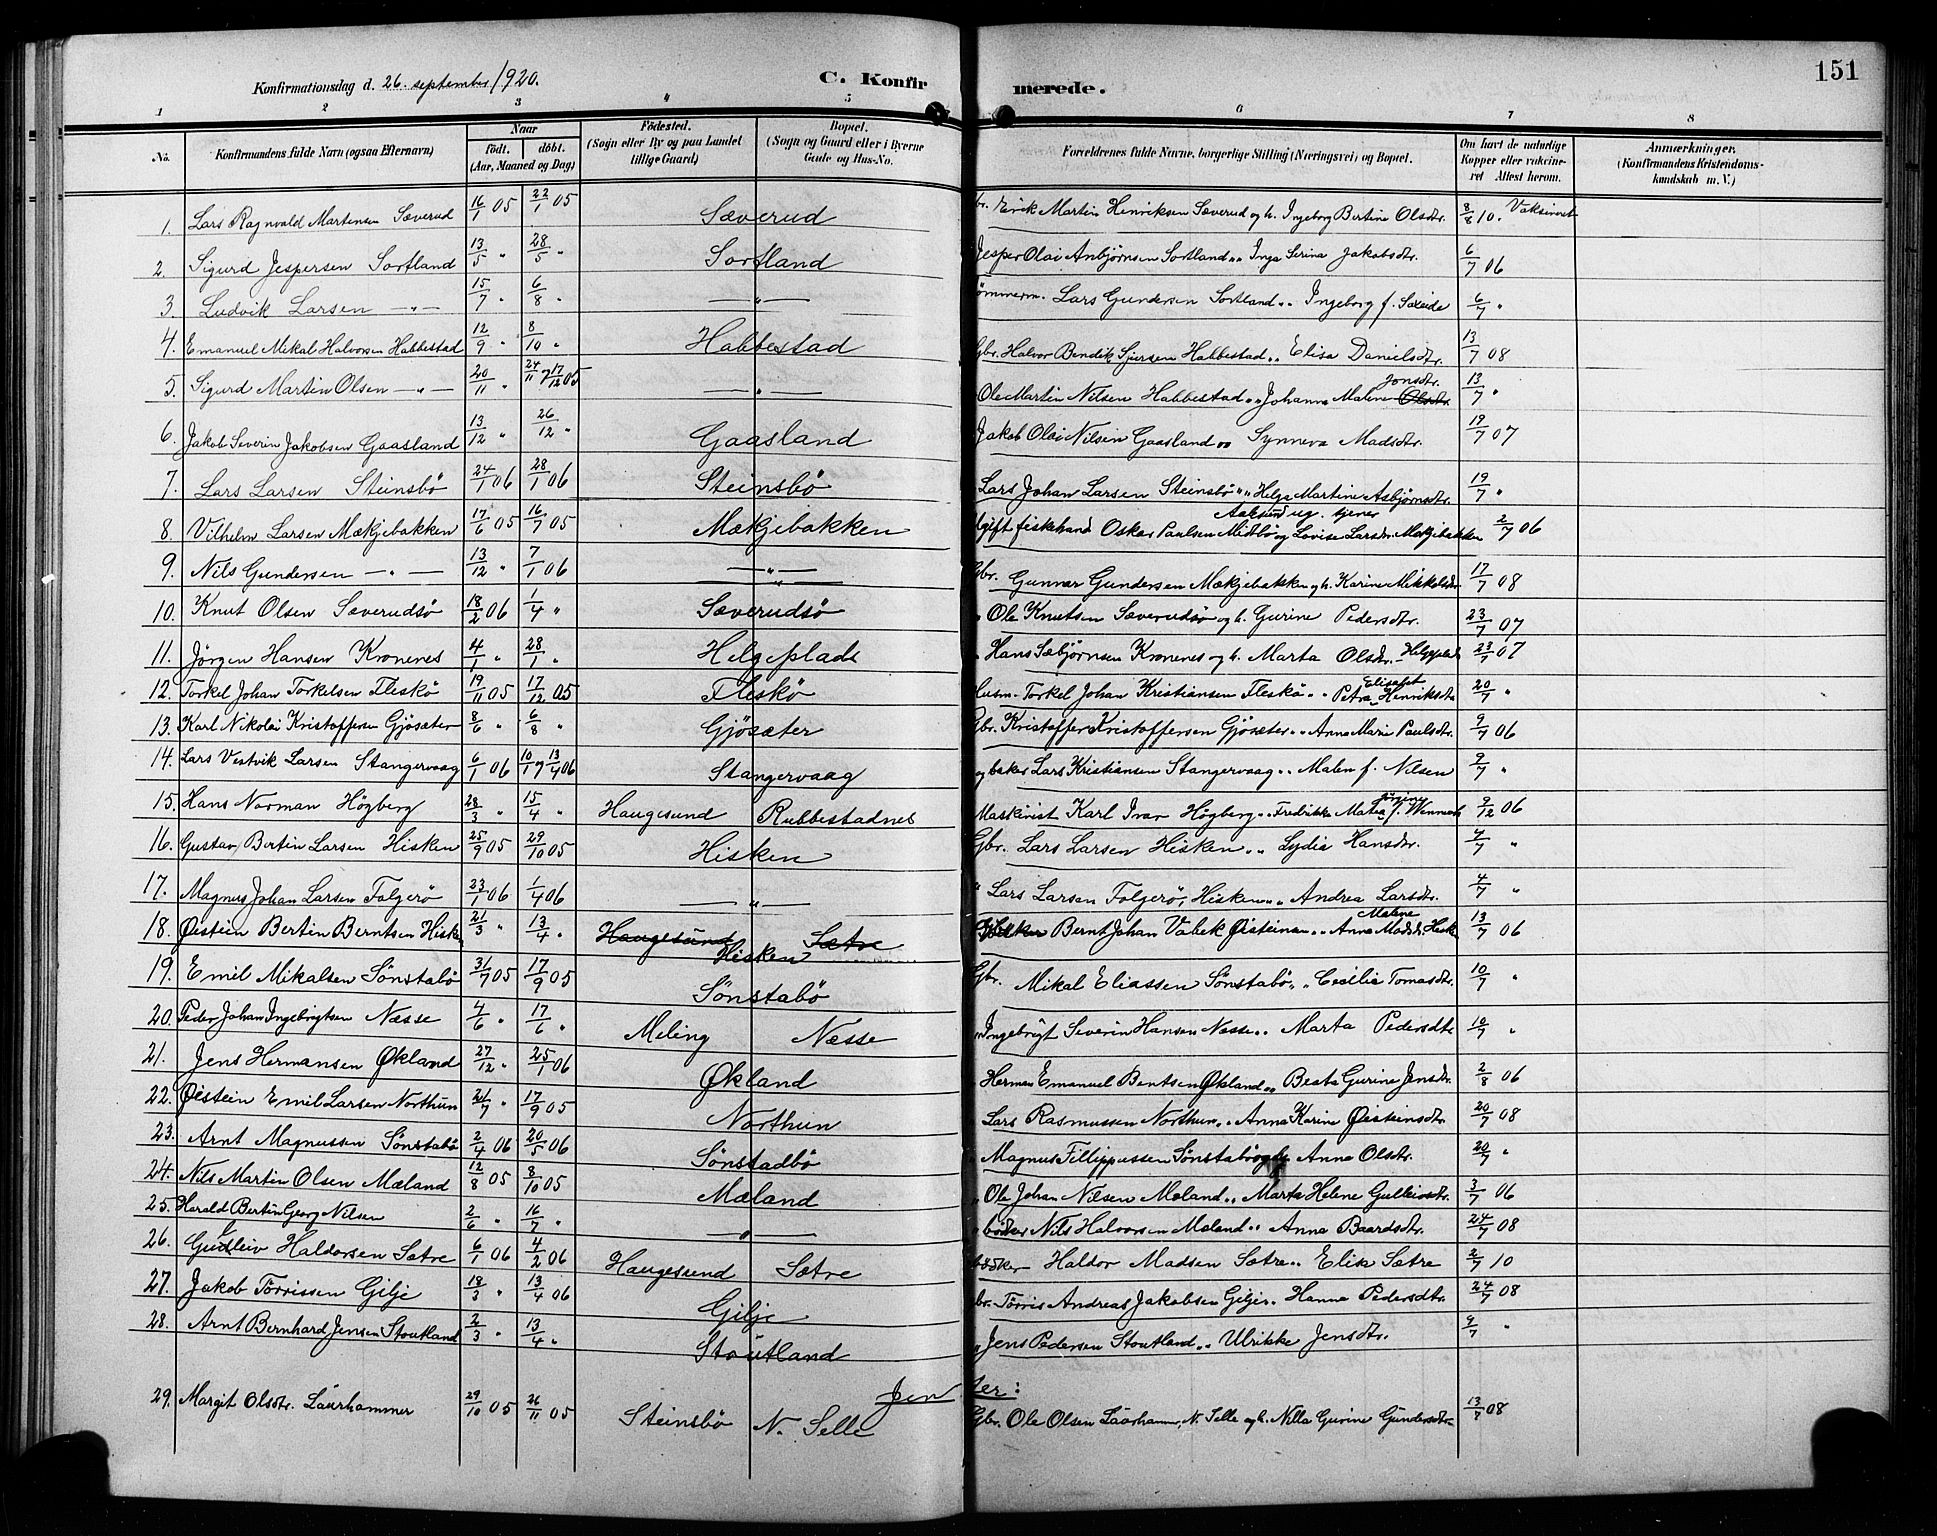 151
Konfirmationsdag d. 26. september 1920. C. Konfirmerede.
1 2 3 4 5 6 7 8
No. Konfirmandens fulde Navn (ogsaa Efternavn) Naar födt. döbt. (Aar, Maaned og Dag) Födested. (Sogn eller By og paa Landet tillige Gaard) Bopæl. (Sogn og Gaard eller i Byerne Gade og Hus-No. Forældrenes fulde Navne, borgerlige Stilling (Næringsvei) og Bopæl. Om havt de naturlige Kopper eller vaccineret Attest herom. Anmærkninger. (Konfirmandens Kristendomskundskab m. V.)
1. Lars Ragnvald Martinsen Sæverud 16/1 05 22/1 05 Sæverud br. Erik Martin Henriksen Sæverud og h. Ingeborg Bertine Olsdtr. 8/8 10. Vaksineret
2. Sigurd Jespersen Sortland 13/5 " 28/5 " Sortland Jesper Olai Anbjørnsen Sortland " " Inga Serina Jakobsdtr. 6/7 06
3. Ludvik Larsen — " — 15/7 " 6/8 " — " — ømmerm. Lars Gundersen Sortland " " Ingeborg f. Sæleide 6/7 "
4. Emanuel Mikal Halvorsen Habbestad 12/9 " 8/10 " Habbestad Gbr. Halvor Bendik Sjursen Habbestad " " Elisa Danielsdtr. 13/7 08
5. Sigurd Martin Olsen — " — 20/11 " 24/11 17/12 05 — " — Ole Martin Nilsen Habbestad " " Johanna Malene Jonsdtr. Olsdtr. 13/7 "
6. Jakob Severin Jakobsen Gaasland 13/12 " 26/12 " Gaasland Jakob Olai Nilsen Gaasland " " Synneva Madsdtr. 19/7 07
7. Lars Larsen Steinsbö 24/1 06 28/1 06 Steinsbö Lars Johan Larsen Steinsbö " " Helga Martine Asbjörnsdtr. 19/7 "
8. Vilhelm Larsen Mækjebakken 17/6 05 16/7 05 Mækjebakken Ugift fiskehand Oskar Paulsen Midtbö og ug. tjener Lovise Larsdtr. Mækjebakken 2/7 06
9. Nils Gundersen — " — 13/12 " 7/1 06 — " — Gbr. Gunnar Gundersen Mækjebakken og h. Karine Mikkelsdtr 17/7 08
10. Knut Olsen Sæverudsö 18/2 06 1/4 " Sæverudsö " Ole Knutsen Sæverudsö og h. Gurine Pedersdtr. 23/7 07
11. Jörgen Hansen Kronenes 4/1 " 28/1 " Helgeplads " Hans Sæbjörnsen Kronenes og h. Marta Olsdtr. Helgeplads 23/7 07
12. Torkel Johan Torkelsen Fleskö 19/11 05 17/12 05 Fleskö Husm. Torkel Johan Kristiansen Fleskö " " Petra Elisabet Henriksdtr 20/7 "
13. Karl Nikolai Kristoffersen Gjösæter 8/6 " 6/8 " Gjösæter Gbr. Kristoffer Kristoffersen Gjösæter " " Anna Marie Paulsdtr. 9/7 06
14. Lars Vestvik Larsen Stangervaag 6/1 06 10/1 13/4 06 Stangervaag og baker Lars Kristiansen Stangervaag " " Malene f. Nilsen 9/7 "
15. Hans Norman Högberg 28/3 " 15/4 " Haugesund Rubbestadnes Maskinist Karl Ivar Högberg " " Fredrikke Matea Jörgine f. Wenneck 9/12 06
16. Gustav Bertin Larsen Hisken 25/9 05 29/10 05 Hisken Gbr. Lars Larsen Hisken " " Lydia Hansdtr. 4/7 "
17. Magnus Johan Larsen Folgerö 23/1 06 1/4 06 — " — " Lars Larsen Folgerö, Hisken " " Andrea Larsdtr. 4/7 "
18. Øistein Bertin Berntsen Hisken 21/3 " 13/4 " Haugesund Sætre Hisken Bernt Johan Vabek Øisteinsen " " Anna Malene Madsdtr. Hisk 13/7 06
19. Emil Mikalsen Sönstabö 31/7 05 17/9 05 Sönstabö Gbr. Mikal Eliassen Sönstabö " " Cecilie Tomasdtr. 10/7 "
20. Peder Johan Ingebrigtsen Næsse 4/6 " 17/6 " Meling Næsse " Ingebrigt Severin Hansen Næsse " " Marta Pedersdtr 10/7 "
21. Jens Hermansen Økland 27/12 " 25/1 06 Økland Herman Emanuel Bentsen Økland " " Beata Gurine Jensdtr. 2/8 06
22. Øistein Emil Larsen Northun 21/7 " 17/9 05 Northun Lars Rasmussen Northun " " Anna Karine Øisteinsdtr. 20/7 08
23. Arnt Magnussen Sönstabö 2/4 06 20/5 06 Sönstadbö Magnus Fillippussen Sönstabö og h. Anna Olsdtr. 20/7 "
24. Nils Martin Olsen Mæland 12/8 05 8/10 05 Mæland " Ole Johan Nilsen Mæland " " Marta Helene Gulleivsdtr. 3/7 06
25. Harald Bertin Georg Nilsen 2/6 " 16/7 " — " — " bödker Nils Halvorsen Mæland " " Anna Baardsdtr. 24/7 08
26. Gudleiv Haldorsen Sætre 6/1 06 4/2 06 Haugesund Sætre bödker Haldor Madsen Sætre " " Elise Sætre 2/7 10
27. Jakob Törrissen Gilje 18/3 " 13/4 06 Gilje br. Törris Andreas Jakobsen Gilje " " Hanna Pedersdtr. 24/7 08
28. Arnt Bernhard Jensen Stoutland 2/3 " 13/4 " Stoutland " Jens Pedersen Stoutland " " Ulrikke Jensdtr. 9/7 "
Jenter:
29. Margit Olsdtr. Laurhammer 29/10 05 26/11 05 Steinsbö N. Selle Gbr. Ole Olsen Laurhammer, N. Selle og h. Nilla Gurine Gundersdtr. 13/8 08